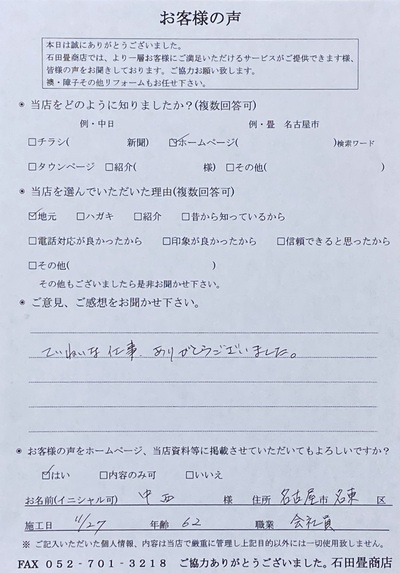 お客様の声
本日は誠にありがとうございました。
石田畳商店では、より一層お客様にご満足いただけるサービスがご提供できます様、
皆様の声をお聞きしております。ご協力お願い致します。
襖・障子その他リフォームもお任せ下さい。
◉ 当店をどのように知りましたか?(複数回答可)
例・中日 例・畳 名古屋市
□チラシ( 新聞) ☑ホームページ( )検索ワード
□タウンページ □紹介( 様) □その他( )
◉ 当店を選んでいただいた理由(複数回答可)
☑地元 □ハガキ □紹介 □昔から知っているから
□電話対応が良かったから □印象が良かったから □信頼できると思ったから
□その他( )
その他もございましたら是非お聞かせ下さい。
◉ ご意見、ご感想をお聞かせ下さい。
ていねいな仕事、ありがとうございました。
◉ お客様の声をホームページ、当店資料等に掲載させていただいてもよろしいですか?
☑はい □内容のみ可 □いいえ
お名前(イニシャル可) 中西 様 住所 名古屋市 名東 区
施工日 11/27 年齢 62 職業 会社員
※ ご記入いただいた個人情報、内容は当店で厳重に管理し上記目的以外には一切使用致しません。
FAX 052-701-3218 ご協力ありがとうございました。石田畳商店